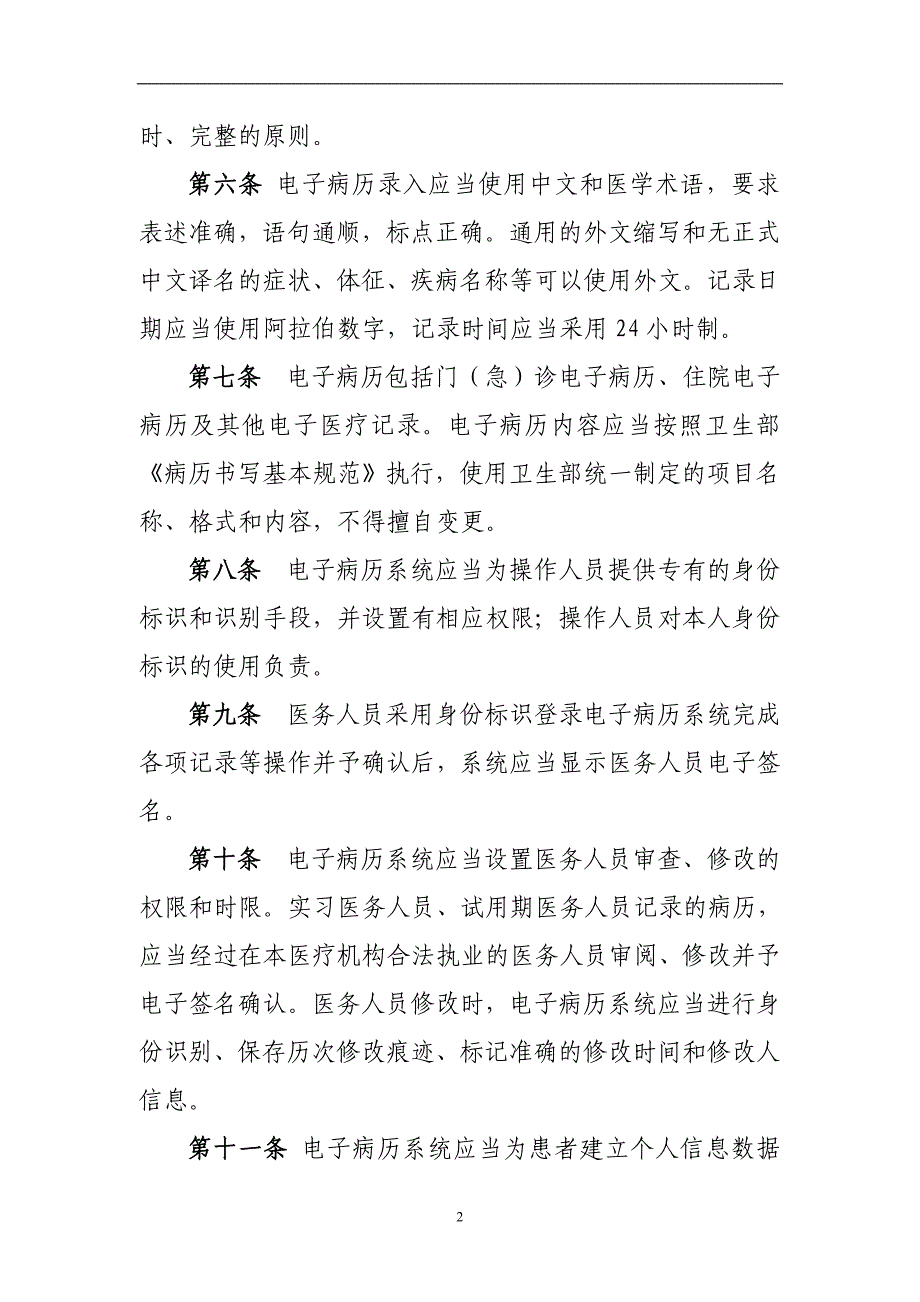 时、完整的原则。
第六条 电子病历录入应当使用中文和医学术语，要求
表述准确，语句通顺，标点正确。通用的外文缩写和无正式
中文译名的症状、体征、疾病名称等可以使用外文。记录日
期应当使用阿拉伯数字，记录时间应当采用 24 小时制。
第七条　电子病历包括门（急）诊电子病历、住院电子
病历及其他电子医疗记录。电子病历内容应当按照卫生部
《病历书写基本规范》执行，使用卫生部统一制定的项目名
称、格式和内容，不得擅自变更。
第八条　电子病历系统应当为操作人员提供专有的身份
标识和识别手段，并设置有相应权限；操作人员对本人身份
标识的使用负责。
第九条　医务人员采用身份标识登录电子病历系统完成
各项记录等操作并予确认后，系统应当显示医务人员电子签
名。
第十条　电子病历系统应当设置医务人员审查、修改的
权限和时限。实习医务人员、试用期医务人员记录的病历，
应当经过在本医疗机构合法执业的医务人员审阅、修改并予
电子签名确认。医务人员修改时，电子病历系统应当进行身
份识别、保存历次修改痕迹、标记准确的修改时间和修改人
信息。
第十一条 电子病历系统应当为患者建立个人信息数据
2